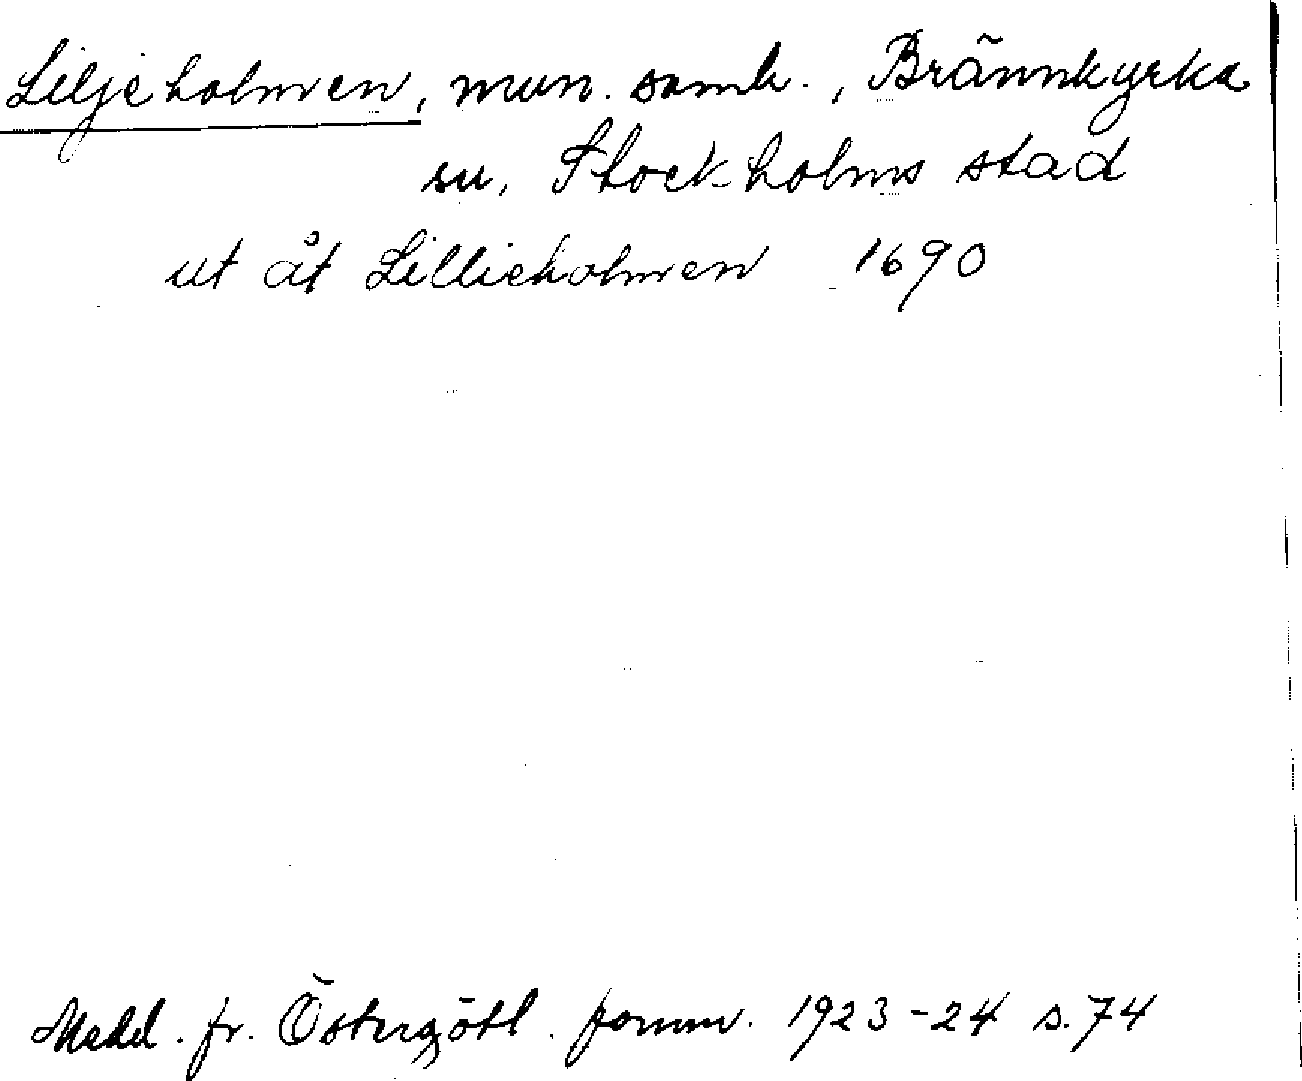 Liljeholmen, mun. samh., Brännkyrka
sn, Stockholms stad
ut åt Lillieholmen 1690
Medd. fr. Östergötl. fornm. 1923-24 s. 74